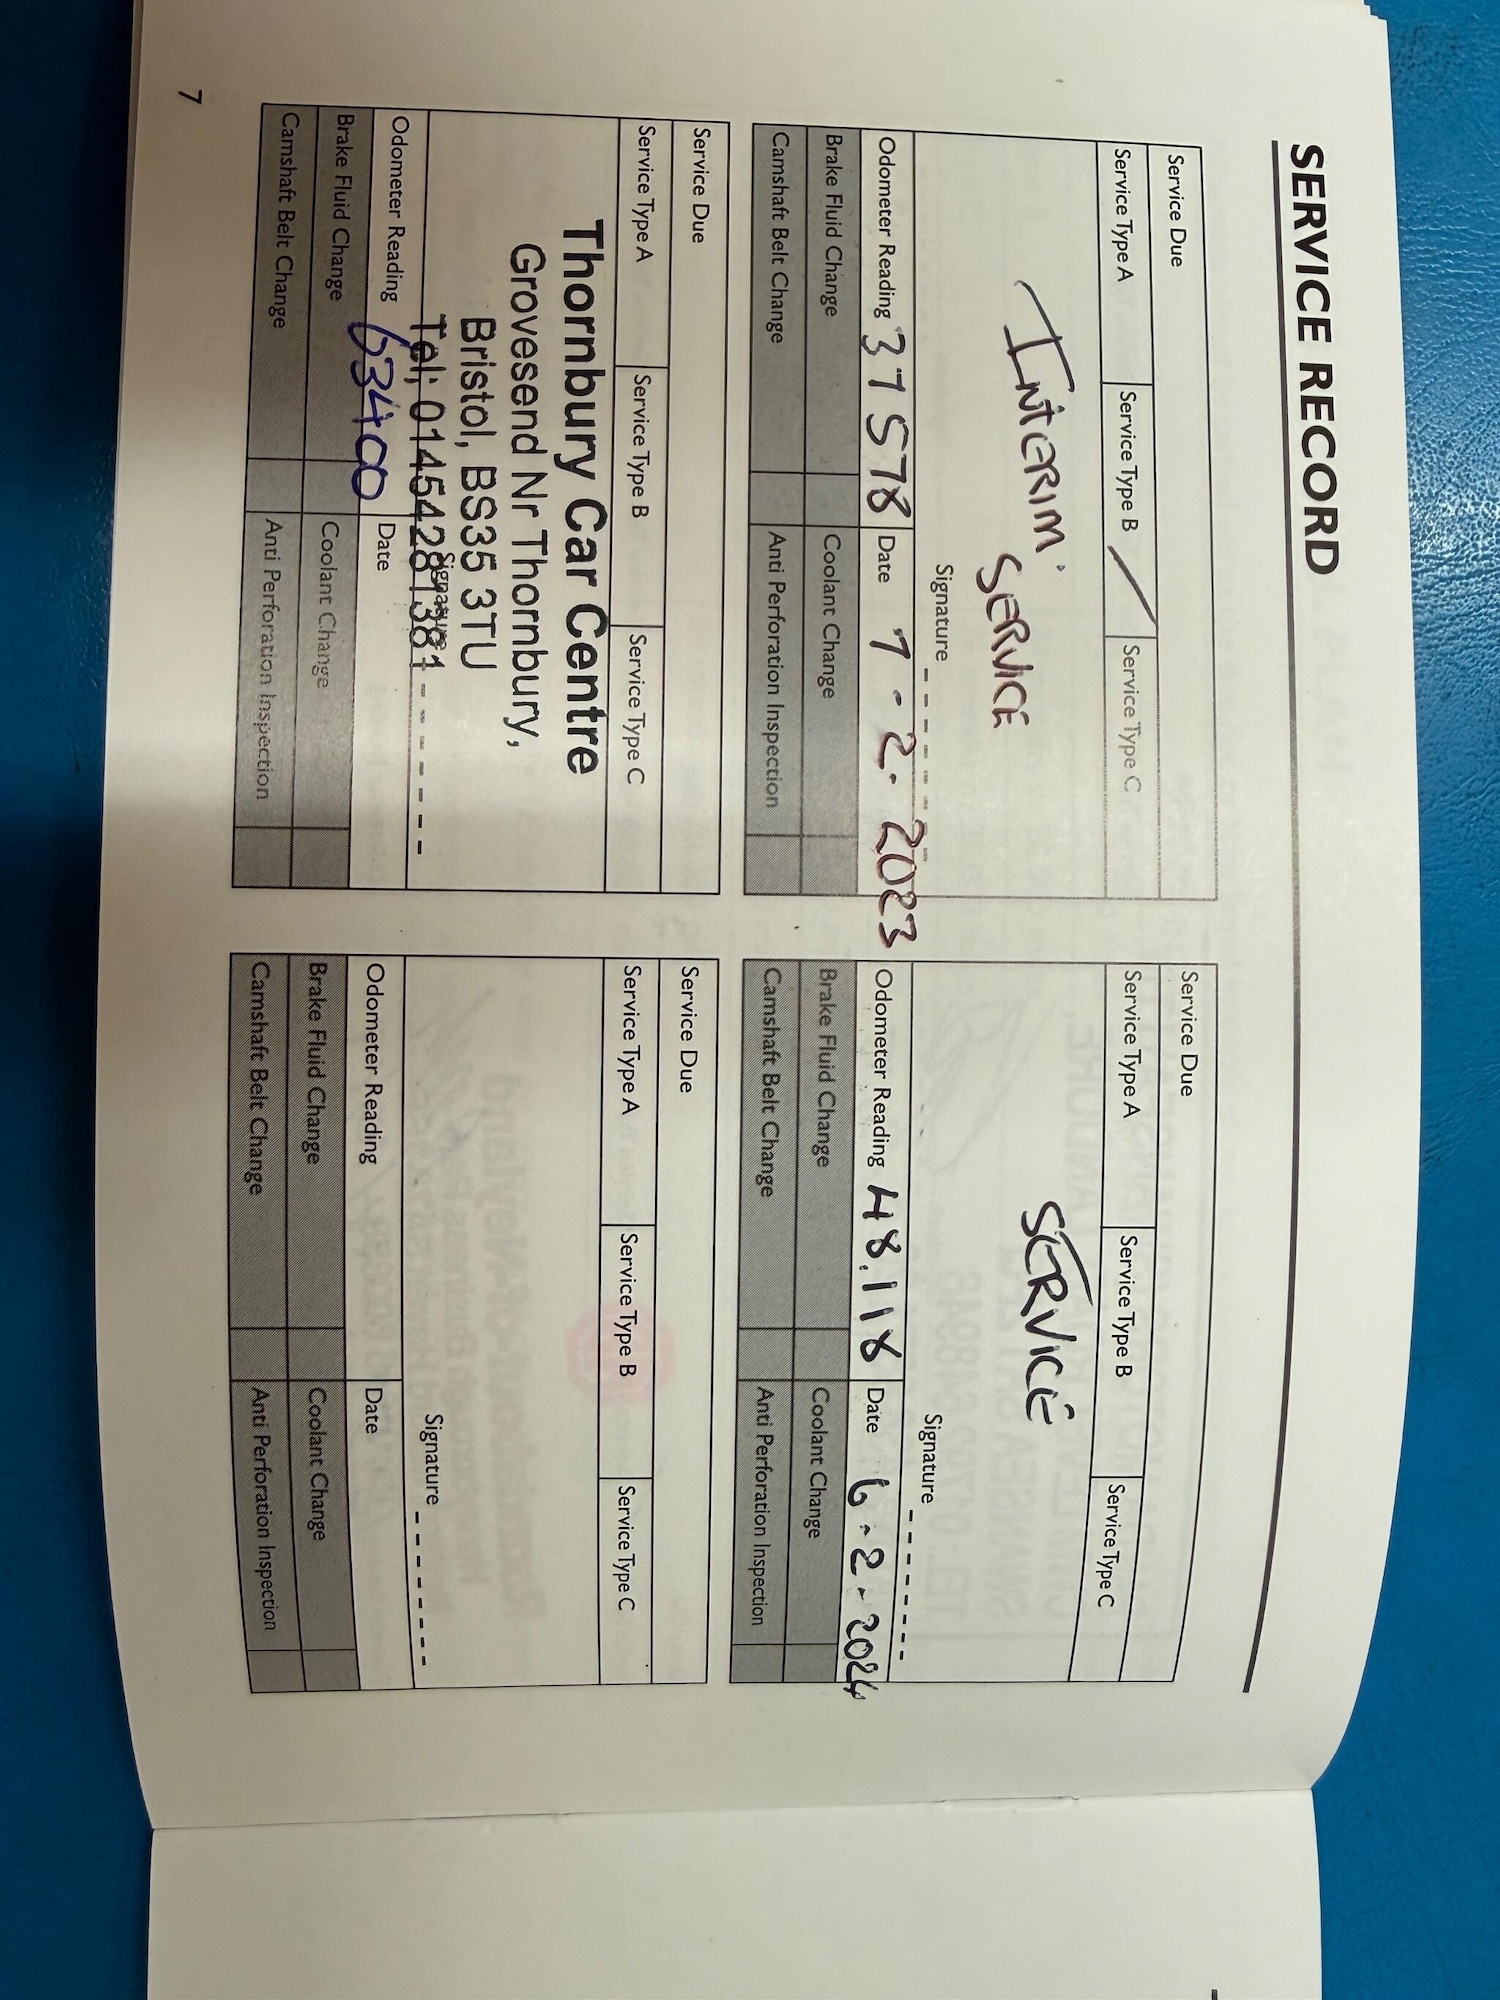 SERVICE RECORD
Service Due
Service Type A Service Type B / Service Type C
INTERIM
SERVICE
Signature
Odometer Reading 37578 Date 7-2-2023
Brake Fluid Change Coolant Change
Camshaft Belt Change Anti Perforation Inspection
Service Due
Service Type A Service Type B Service Type C
SERVICE
Signature
Odometer Reading 48,118 Date 6-2-2024
Brake Fluid Change Coolant Change
Camshaft Belt Change Anti Perforation Inspection
Service Due
Service Type A Service Type B Service Type C
Thornbury Car Centre
Grovesend Nr Thornbury,
Bristol, BS35 3TU
Signature
Tel; 01454281381
Odometer Reading 63400 Date
Brake Fluid Change Coolant Change
Camshaft Belt Change Anti Perforation Inspection
Service Due
Service Type A Service Type B Service Type C
Signature
Odometer Reading Date
Brake Fluid Change Coolant Change
Camshaft Belt Change Anti Perforation Inspection
7